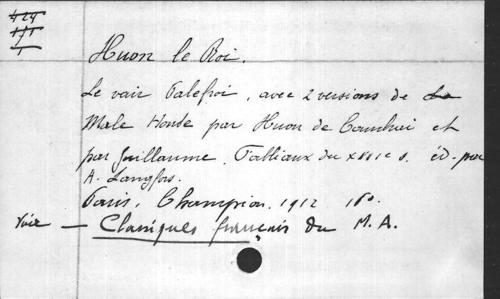 Huon le Roi.
Le vair Palefroi, avec 2 versions de La
Male Honte par Huon de Cambrai et
par Guillaume. Fabliaux du XIIIe s. éd. par
A. Langfors.
Paris, Champion, 1912 16º.
Voir — Classiques français du M. A.